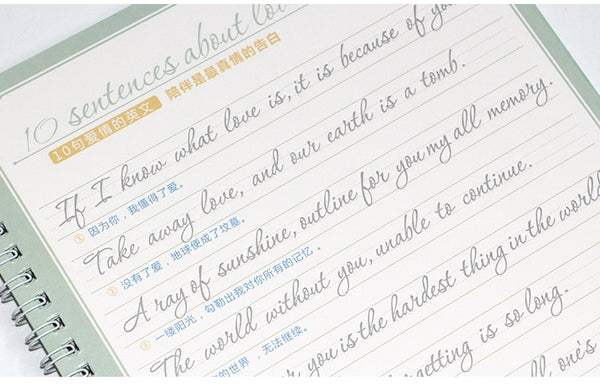 10 sentences about
10句爱情的英文 陪伴是最真情的告白
If I know what love is, it is because of
① 因为你，我懂得了爱。
Take away love, and our earth is a tomb.
② 没有了爱，地球便成了坟墓。
A ray of sunshine, outline for you my all memory.
③ 一缕阳光，勾勒出我对你所有的记忆。
The world without you, unable to continue.
的世界，无法继续。
you is the hardest thing in the world
getting is so long.
all one's